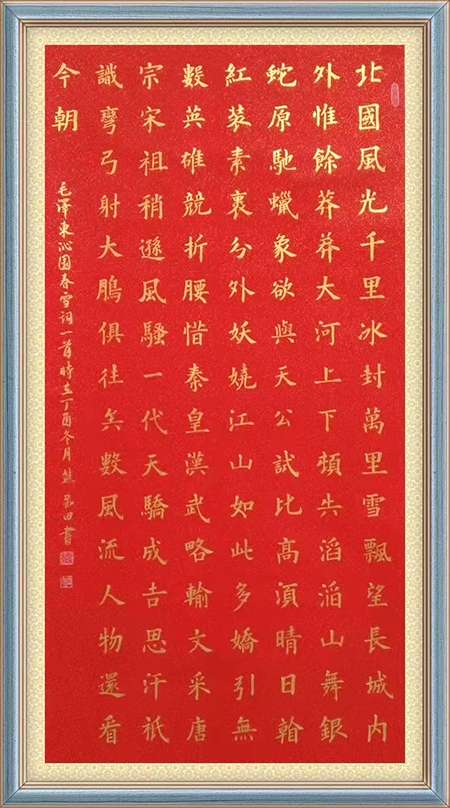 北國風光千里冰封萬里雪飄望長城内
外惟餘莽莽大河上下頓失滔滔山舞銀
蛇原馳蠟象欲與天公試比高須晴日
紅装素裹分外妖嬈江山如此多嬌引無
數英雄競折腰惜秦皇漢武略輸文采唐
宗宋祖稍遜風騷一代天驕成吉思汗祇
識彎弓射大鵰俱往矣數風流人物還看
今朝
毛澤東沁園春雪詞一首時在丁酉冬月熊田書